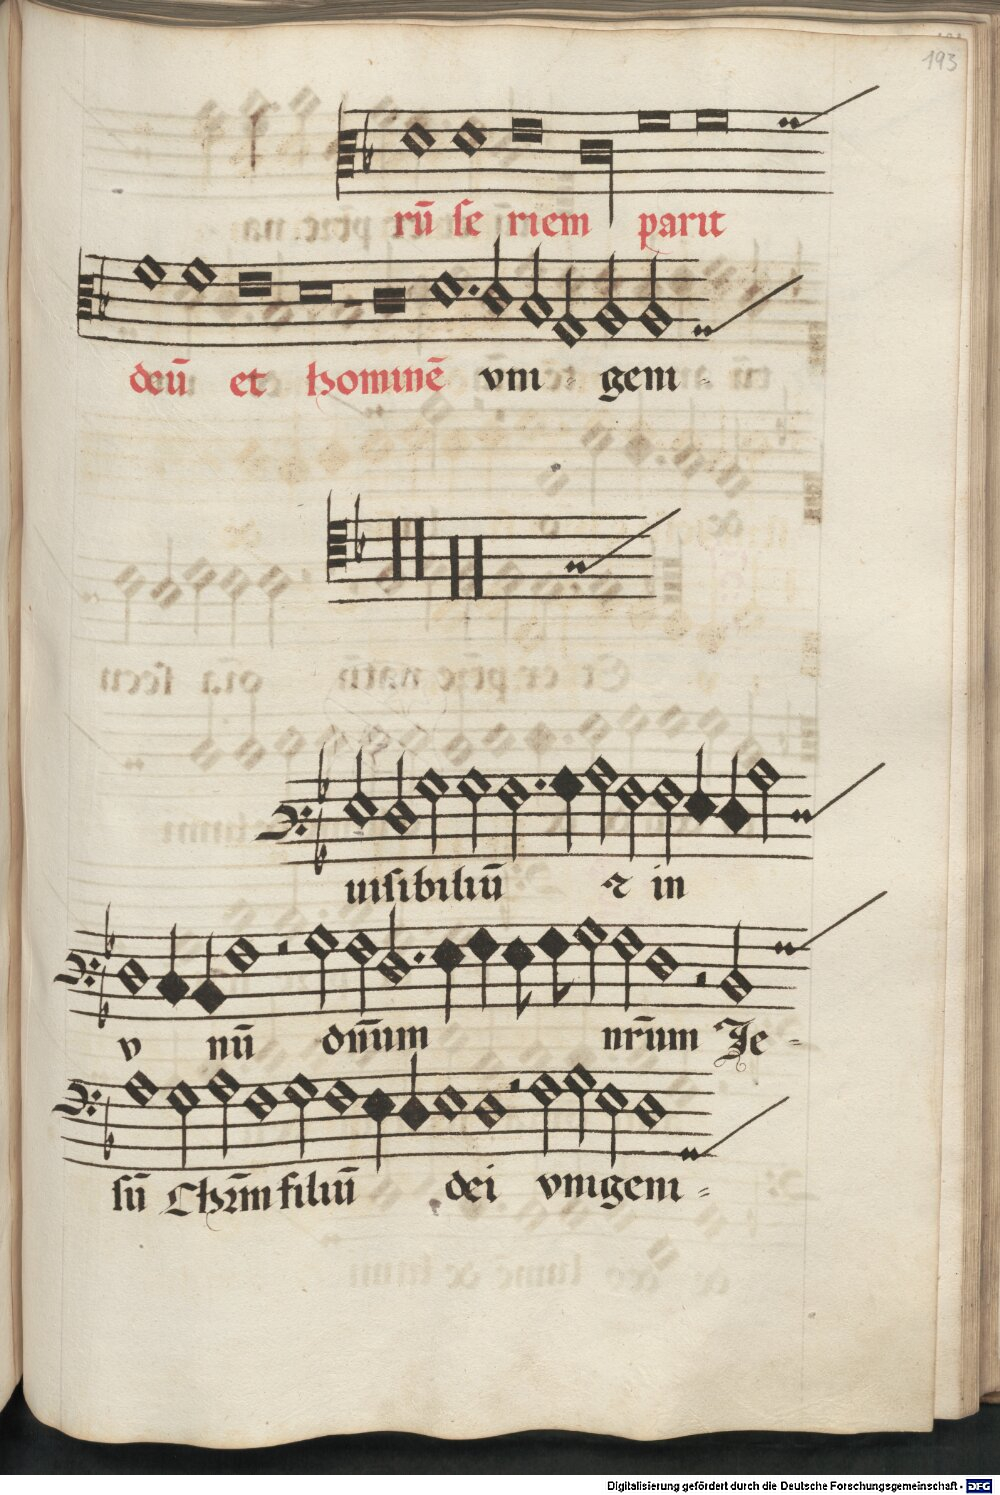 193
rū se riem parit
deū et hominē vni - geni -
uisibiliū ⁊ in
v nū dn̄um nr̄um Je -
sū Chr̄m filiū dei vnigeni =
Digitalisierung gefördert durch die Deutsche Forschungsgemeinschaft - DFG